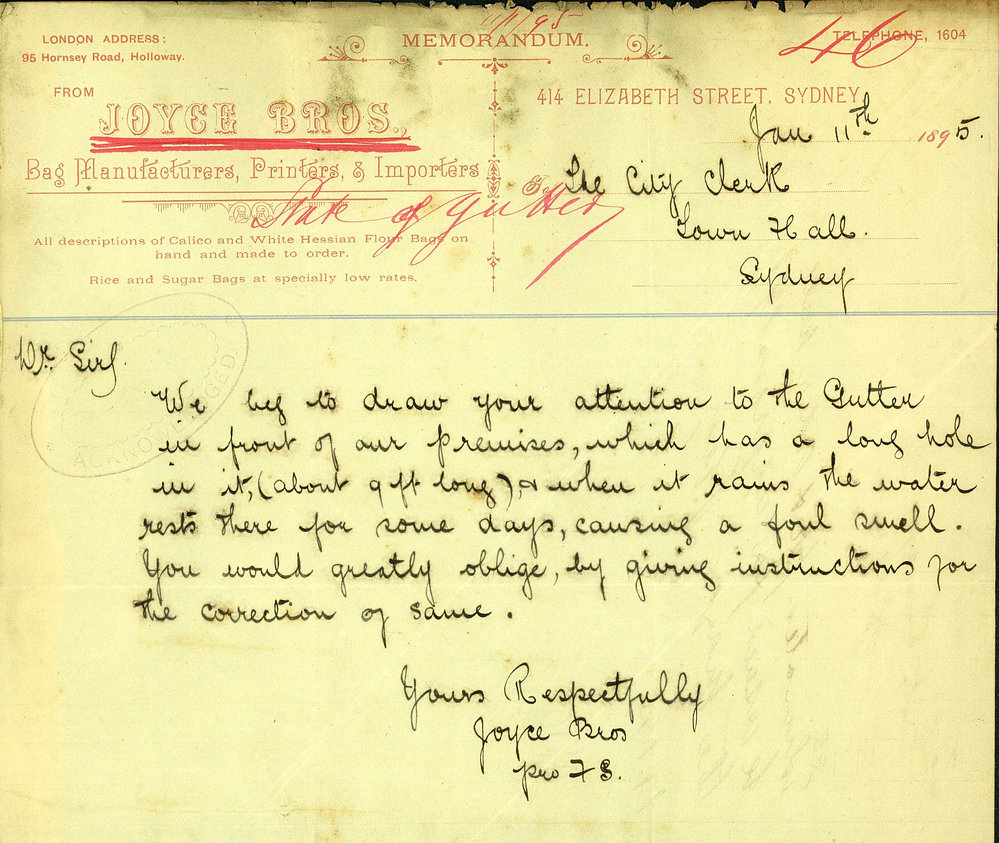 11/1/95
LONDON ADDRESS:
95 Hornsey Road, Holloway.
MEMORANDUM.
TELEPHONE, 1604
46
FROM
JOYCE BROS.,
Bag Manufacturers, Printers, & Importers
State of gutter
All descriptions of Calico and White Hessian Flour Bags on
hand and made to order.
Rice and Sugar Bags at specially low rates.
414 ELIZABETH STREET, SYDNEY,
Jan 11th 1895.
To The City Clerk
Town Hall.
Sydney
ACKNOWLEDGED.
Dr. Sir
We beg to draw your attention to the Gutter
in front of our premises, which has a long hole
in it, (about 9 ft long), & when it rains the water
rests there for some days, causing a foul smell.
You would greatly oblige, by giving instructions for
the correction of same.
Yours Respectfully
Joyce Bros
pro